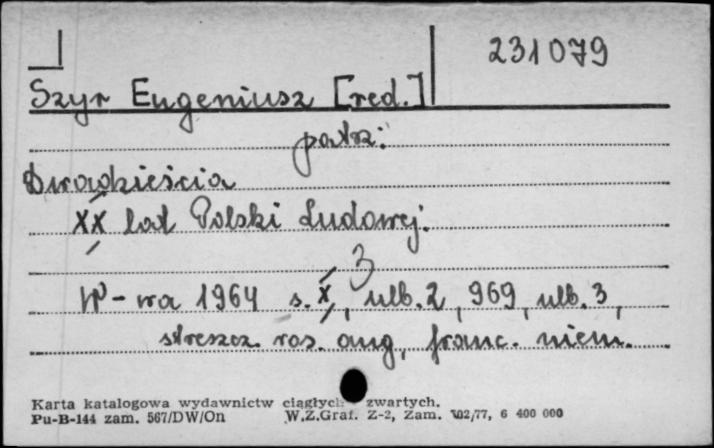 231079
Szyr Eugeniusz [red.]
patrz:
Dwadzieścia
XX lat Polski Ludowej.
3
W-wa 1964 s. X, nlb. 2, 969, nlb. 3,
streszcz. ros. ang, franc. niem.
Karta katalogowa wydawnictw ciągłych zwartych.
Pu-B-144 zam. 567/DW/On W.Z.Graf. Z-2, Zam. 102/77, 6 400 000